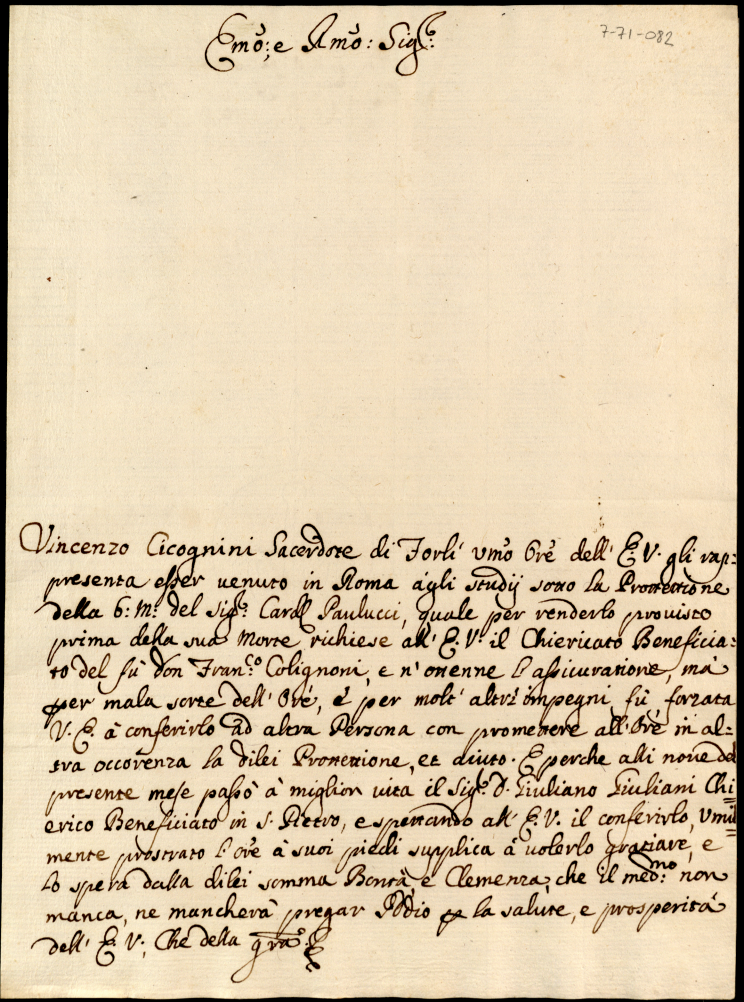 7-71-082
Emo: e Rmo: Sig.r
Vincenzo Cicognini Sacerdote di Forlì umo Ore dell' E. V. gli rap=
presenta esser venuto in Roma agli studij sotto la Protettione
della b: m: del Sig.r Cardl Paulucci, quale per renderlo provisto
prima della sua morte richiese all' E. V. il Chiericato Beneficia=
to del fù Don Fran.co Colignoni, e n' ottenne l' assicuratione, mà
per mala sorte dell' Ore, è per molt' altri impegni fù forzata
V. E. à conferirlo ad altra Persona con promettere all' Ore in al=
tra occorenza la dilei Protettione, et aiuto. E perche alli nove del
presente mese passò à miglior vita il Sig.r D. Giuliano Giuliani Chi=
erico Beneficiato in S. Pietro, e spettando all' E. V. il conferirlo, Umil=
mente prostrato l' Ore à suoi piedi supplica à volerlo gratiare, e
lo spera dalla dilei somma Bontà, e Clemenza, che il med.mo non
manca, ne mancherà pregar Iddio p la salute, e prosperità
dell' E. V., Che della gra.